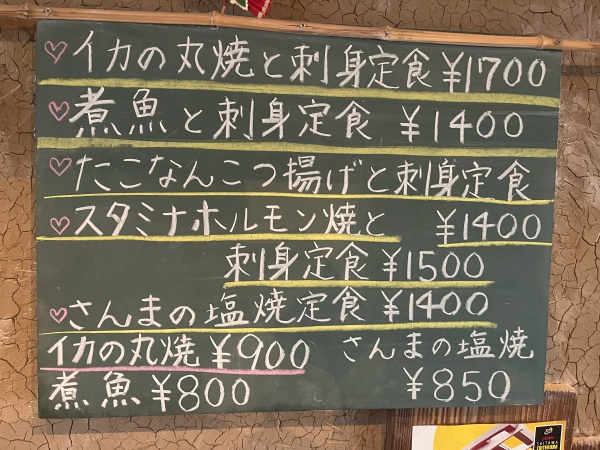 ♡イカの丸焼と刺身定食 ¥1700
♡煮魚と刺身定食 ¥1400
♡たこなんこつ揚げと刺身定食
¥1400
♡スタミナホルモン焼と
刺身定食 ¥1500
♡さんまの塩焼定食 ¥1400
イカの丸焼 ¥900
さんまの塩焼
¥850
煮魚 ¥800